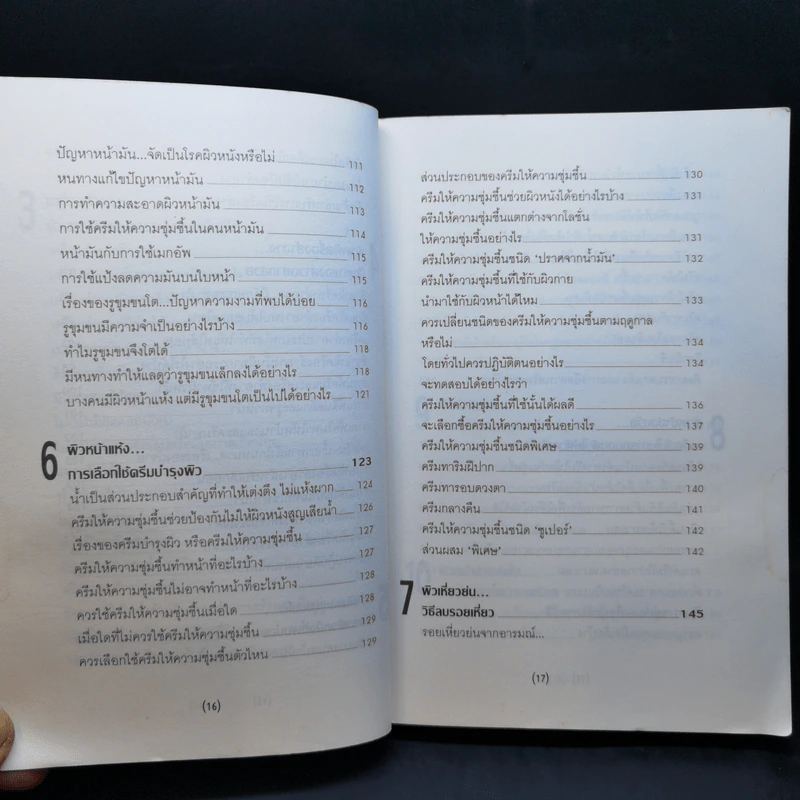 ปัญหาหน้ามัน...จัดเป็นโรคผิวหนังหรือไม่ 111
หนทางแก้ไขปัญหาหน้ามัน 112
การทำความสะอาดผิวหน้ามัน 113
การใช้ครีมให้ความชุ่มชื้นในคนหน้ามัน 114
หน้ามันกับการใช้เมกอัพ 115
การใช้แป้งลดความมันบนใบหน้า 115
เรื่องของรูขุมขนโต...ปัญหาความงามที่พบได้บ่อย 116
รูขุมขนมีความจำเป็นอย่างไรบ้าง 116
ทำไมรูขุมขนจึงโตได้ 118
มีหนทางทำให้แลดูว่ารูขุมขนเล็กลงได้อย่างไร 118
บางคนมีผิวหน้าแห้ง แต่มีรูขุมขนโตเป็นไปได้อย่างไร 121
6 ผิวหน้าแห้ง...
การเลือกใช้ครีมบำรุงผิว 123
น้ำเป็นส่วนประกอบสำคัญที่ทำให้เต่งตึง ไม่แห้งผาก 124
ครีมให้ความชุ่มชื้นช่วยป้องกันไม่ให้ผิวหนังสูญเสียน้ำ 126
เรื่องของครีมบำรุงผิว หรือครีมให้ความชุ่มชื้น 127
ครีมให้ความชุ่มชื้นทำหน้าที่อะไรบ้าง 127
ครีมให้ความชุ่มชื้นไม่อาจทำหน้าที่อะไรบ้าง 128
ควรใช้ครีมให้ความชุ่มชื้นเมื่อใด 128
เมื่อใดที่ไม่ควรใช้ครีมให้ความชุ่มชื้น 129
ควรเลือกใช้ครีมให้ความชุ่มชื้นตัวไหน 129
(16)
ส่วนประกอบของครีมให้ความชุ่มชื้น 130
ครีมให้ความชุ่มชื้นช่วยผิวหนังได้อย่างไรบ้าง 131
ครีมให้ความชุ่มชื้นแตกต่างจากโลชั่น
ให้ความชุ่มชื้นอย่างไร 131
ครีมให้ความชุ่มชื้นชนิด 'ปราศจากน้ำมัน' 132
ครีมให้ความชุ่มชื้นที่ใช้กับผิวกาย
นำมาใช้กับผิวหน้าได้ไหม 133
ควรเปลี่ยนชนิดของครีมให้ความชุ่มชื้นตามฤดูกาล
หรือไม่ 134
โดยทั่วไปควรปฏิบัติตนอย่างไร 134
จะทดสอบได้อย่างไรว่า
ครีมให้ความชุ่มชื้นที่ใช้นั้นได้ผลดี 136
จะเลือกซื้อครีมให้ความชุ่มชื้นอย่างไร 137
ครีมให้ความชุ่มชื้นชนิดพิเศษ 139
ครีมทาริมฝีปาก 139
ครีมทารอบดวงตา 140
ครีมกลางคืน 141
ครีมให้ความชุ่มชื้นชนิด 'ซูเปอร์' 142
ส่วนผสม 'พิเศษ' 142
7 ผิวเหี่ยวย่น...
วิธีลบรอยเหี่ยว 145
รอยเหี่ยวย่นจากอารมณ์...
(17)